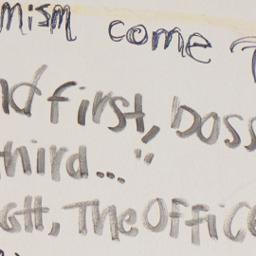 mism come
d first, boss
third..."
The Office